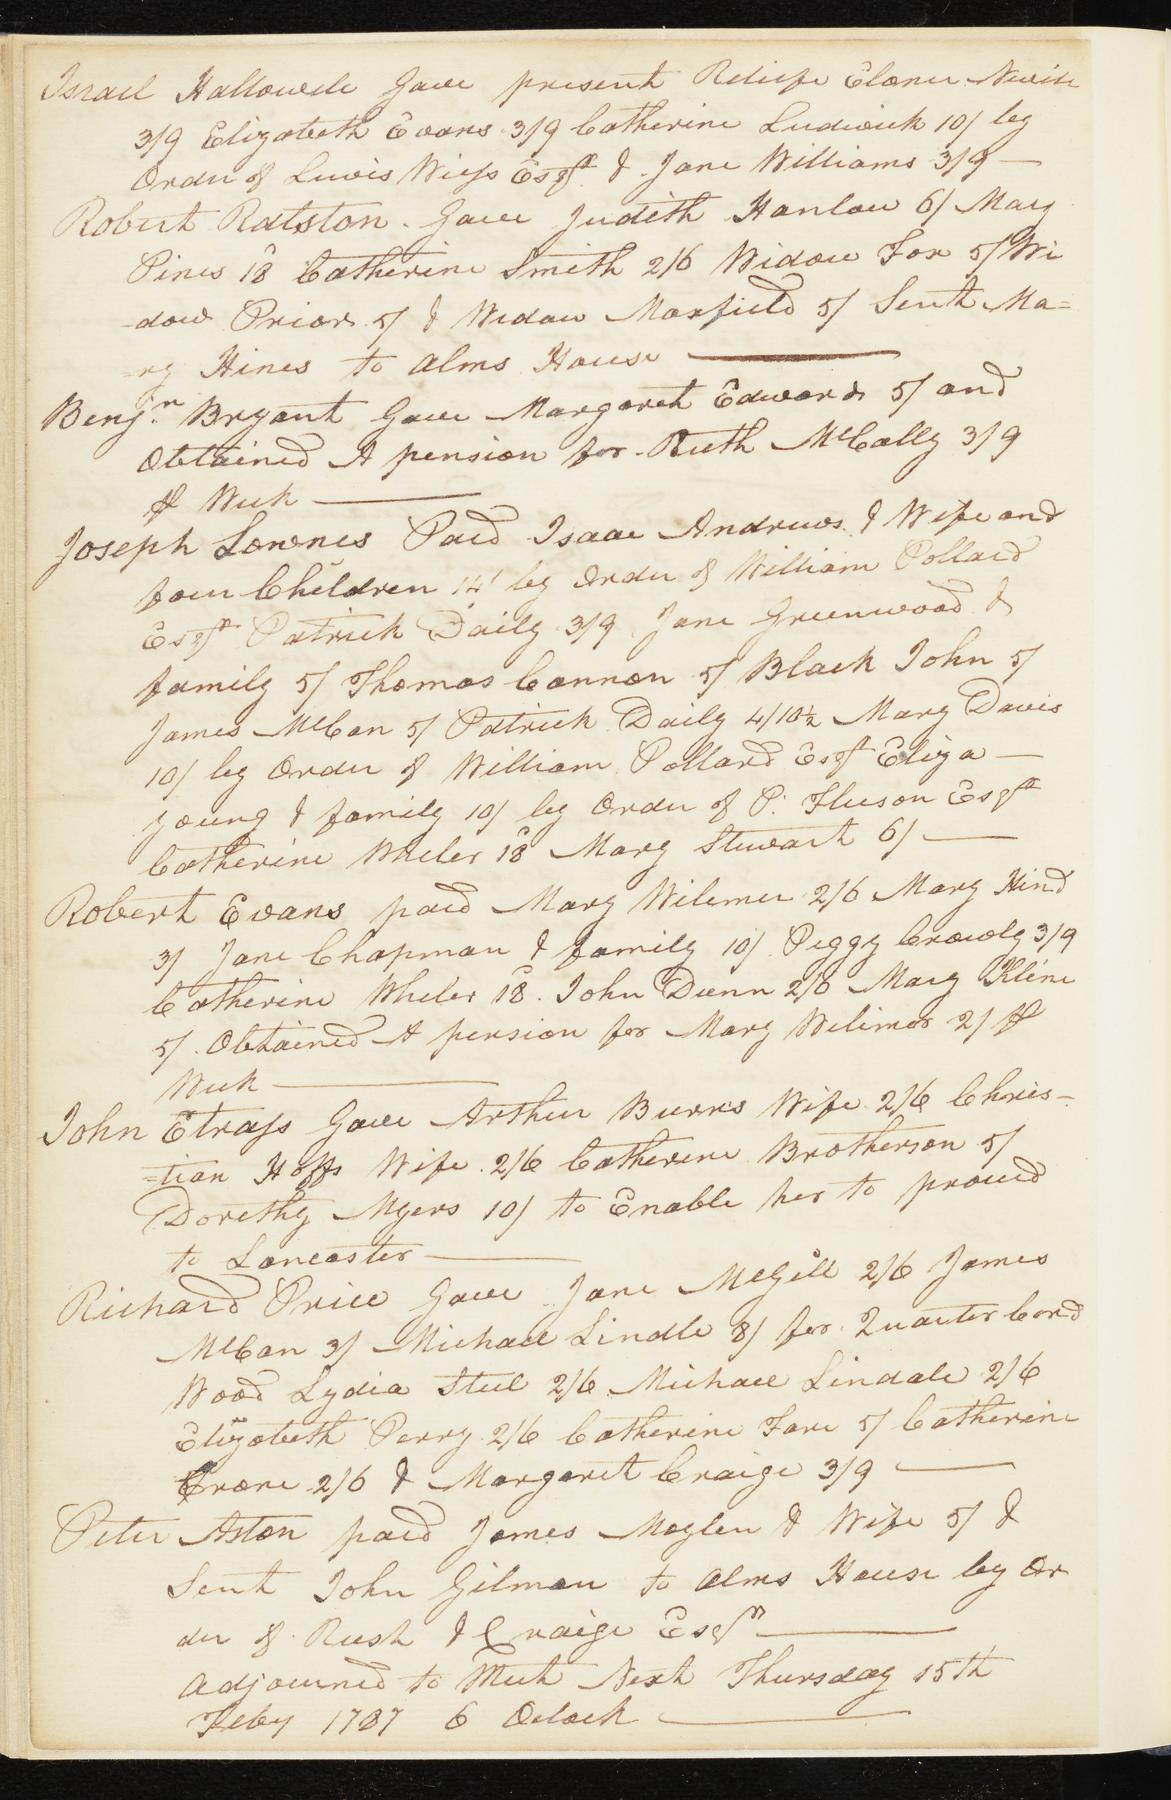 Israel Hallowele Gave present Reliefe Elener Nevile
3/9 Elizabeth Evans 3/9 Catherine Ludwick 10/ by
Order of Lewis Wiess Esqr. & Jane Williams 3/9 —
Robert Ralston. Gave Judith Hanlow 6/ Mary
Pines 18 Catherine Smith 2/6 Widow Fox 5/ Wi
-dow Prior 5/ & Widow Maxfield 5/ Sent Ma=
=ry Hines to Alms House —
Benjn. Bryant Gave Margaret Edwards 5/ and
Obtained A pension for Ruth McCally 3/9
⅌ Week —
Joseph Lownes Paid Isaac Andrews & Wife and
four Children 14/ by Order of William Pollard
Esqr Patrick Daily 3/9 Jane Greenwood &
family 5/ Thomas Cannon 5/ Black John 5/
James McCan 5/ Patrick Daily 4/10½ Mary Davis
10/ by Order of William Pollard Esqr Eliza —
young & family 10/ by Order of P. Hueson Esqr
Catherine Wheler 18 Mary Stewart 6/ —
Robert Evans paid Mary Wilemer 2/6 Mary Hind
3/ Jane Chapman & family 10/ Peggy Crowly 3/9
Catherine Wheler 18. John Dunn 2/6 Mary Kline
5/. Obtained A pension for Mary Welimor 2/ ⅌
Week —
John Etrass Gave Arthur Burns Wife 2/6 Chris-
=tian Hoffs Wife 2/6 Catherene Brotherson 5/
Dorethy Myers 10/ to Enable her to proceed
to Lancaster —
Richard Price Gave Jane McGill 2/6 James
McCan 3/ Michael Lindle 8/ for Quarter Cord
Wood Lydia Steel 2/6 Michael Lindale 2/6
Elizabeth Perry 2/6 Catherine Fare 5/ Catherine
Crone 2/6 & Margaret Craige 3/9 —
Peter Aston paid James Moglen & Wife 5/ &
Sent John Gilman to Alms House by Or
der of Rush & Craige Esqrs —
Adjourned to Meet Next Thursday 15th
Feby 1787 6 Oclock —